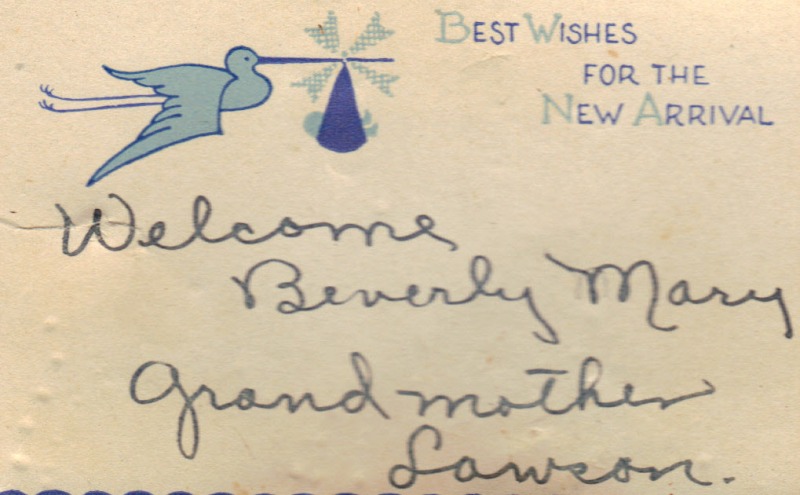 Best Wishes
for the
New Arrival
Welcome
Beverly Mary
Grandmother
Lawson.